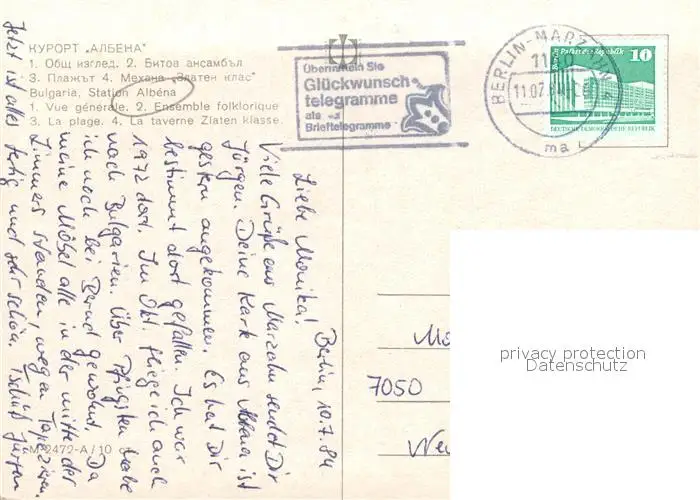 КУРОРТ "АЛБЕНА"
1. Общ изглед. 2. Битов ансамбъл
3. Плажът 4. Механа „Златен клас"
Bulgaria, Station Albéna
1. Vue générale. 2. Ensemble folklorique
3. La plage. 4. La taverne Zlaten klasse
M-2472-A / 10 ст
Übermitteln Sie
Glückwunsch-
telegramme
als
Brieftelegramme
BERLIN-MARZAHN
11.07.84
ma
Palast der Republik
10
DEUTSCHE DEMOKRATISCHE REPUBLIK
Berlin, 10.7.84
Liebe Monika!
Viele Grüße aus Marzahn sendet Dir
Jürgen. Deine Karte aus Albena ist
gestern angekommen. Es hat Dir
bestimmt dort gefallen. Ich war
1972 dort. Im Okt. fliege ich auch
nach Bulgarien. Über Pfingsten habe
ich noch bei Bernd gewohnt. Da
meine Möbel alle in der Mitte der
Zimmers standen, wegen Tapezieren.
Jetzt ist alles fertig und sehr schön. Tschüß Jürgen
7050
privacy protection
Datenschutz